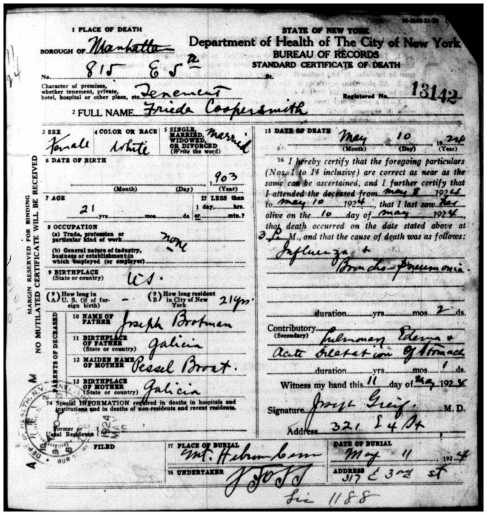 1 PLACE OF DEATH
STATE OF NEW YORK
Department of Health of The City of New York
BUREAU OF RECORDS
STANDARD CERTIFICATE OF DEATH
BOROUGH OF Manhattan
No. 815 E 5th
Character of premises,
whether tenement, private,
hotel, hospital or other place, etc. Tenement
Registered No. 13142
2 FULL NAME Frieda Coopersmith
3 SEX Female
4 COLOR OR RACE White
5 SINGLE, MARRIED, WIDOWED, OR DIVORCED (Write the word) Married
6 DATE OF BIRTH
903
(Month) (Day) (Year)
7 AGE 21 yrs. mos. ds.
If LESS than
1 day, hrs.
or min.?
8 OCCUPATION
(a) Trade, profession or
particular kind of work none
(b) General nature of industry,
business or establishment in
which employed (or employer)
9 BIRTHPLACE
(State or country) U.S.
(A) How long in
U. S. (if of foreign birth)
(B) How long resident
in City of New
York 21 yrs.
PARENTS OF DECEASED
10 NAME OF
FATHER Joseph Brotman
11 BIRTHPLACE
OF FATHER
(State or country) Galicia
12 MAIDEN NAME
OF MOTHER Pessel Brott
13 BIRTHPLACE
OF MOTHER
(State or country) Galicia
14 Special INFORMATION required in deaths in hospitals and
institutions and in deaths of non-residents and recent residents.
Former or
Usual Residence
FILED
MARGIN RESERVED FOR BINDING
NO MUTILATED CERTIFICATE WILL BE RECEIVED
15 DATE OF DEATH May 10 1924
(Month) (Day) (Year)
16 I hereby certify that the foregoing particulars
(Nos. 1 to 14 inclusive) are correct as near as the
same can be ascertained, and I further certify that
I attended the deceased from May 8 1924
to May 10 1924, that I last saw her
alive on the 10 day of May 1924
that death occurred on the date stated above at
3 M., and that the cause of death was as follows:
Influenza &
Broncho-Pneumonia
duration yrs. mos. 2 ds.
Contributory Pulmonary Edema &
(Secondary)
Acute Dilatation of Stomach
duration yrs. mos. 1 ds.
Witness my hand this 11 day of May 1924
Signature Joseph M. D.
Address 321 E 4 St
17 PLACE OF BURIAL
Mt. Hebron Cem
DATE OF BURIAL
May 11 1924
18 UNDERTAKER
ADDRESS
317 E 3rd st
Lic 1188